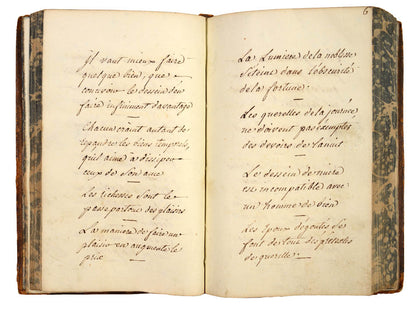 Il vaut mieux faire
quelque bien, que
concevoir le dessein d'en
faire infiniment d'avantage
Chacun craint autant de
repandre les biens temporels,
qu'il aime à dissiper
ceux de son ame
Les richesses sont le
passe partout des plaisirs
La maniere de faire un
plaisir en augmente le
prix
6
La Lumiere de la noblesse
s'éteint dans l'obscurité
de la fortune.
Les querelles de la journée,
ne doivent pas exempter
des devoirs de la nuit
Le dessein de nuire
est incompatible avec
un homme de bien
Les Epoux degoutés se
font de tout des pretextes
de querelle.